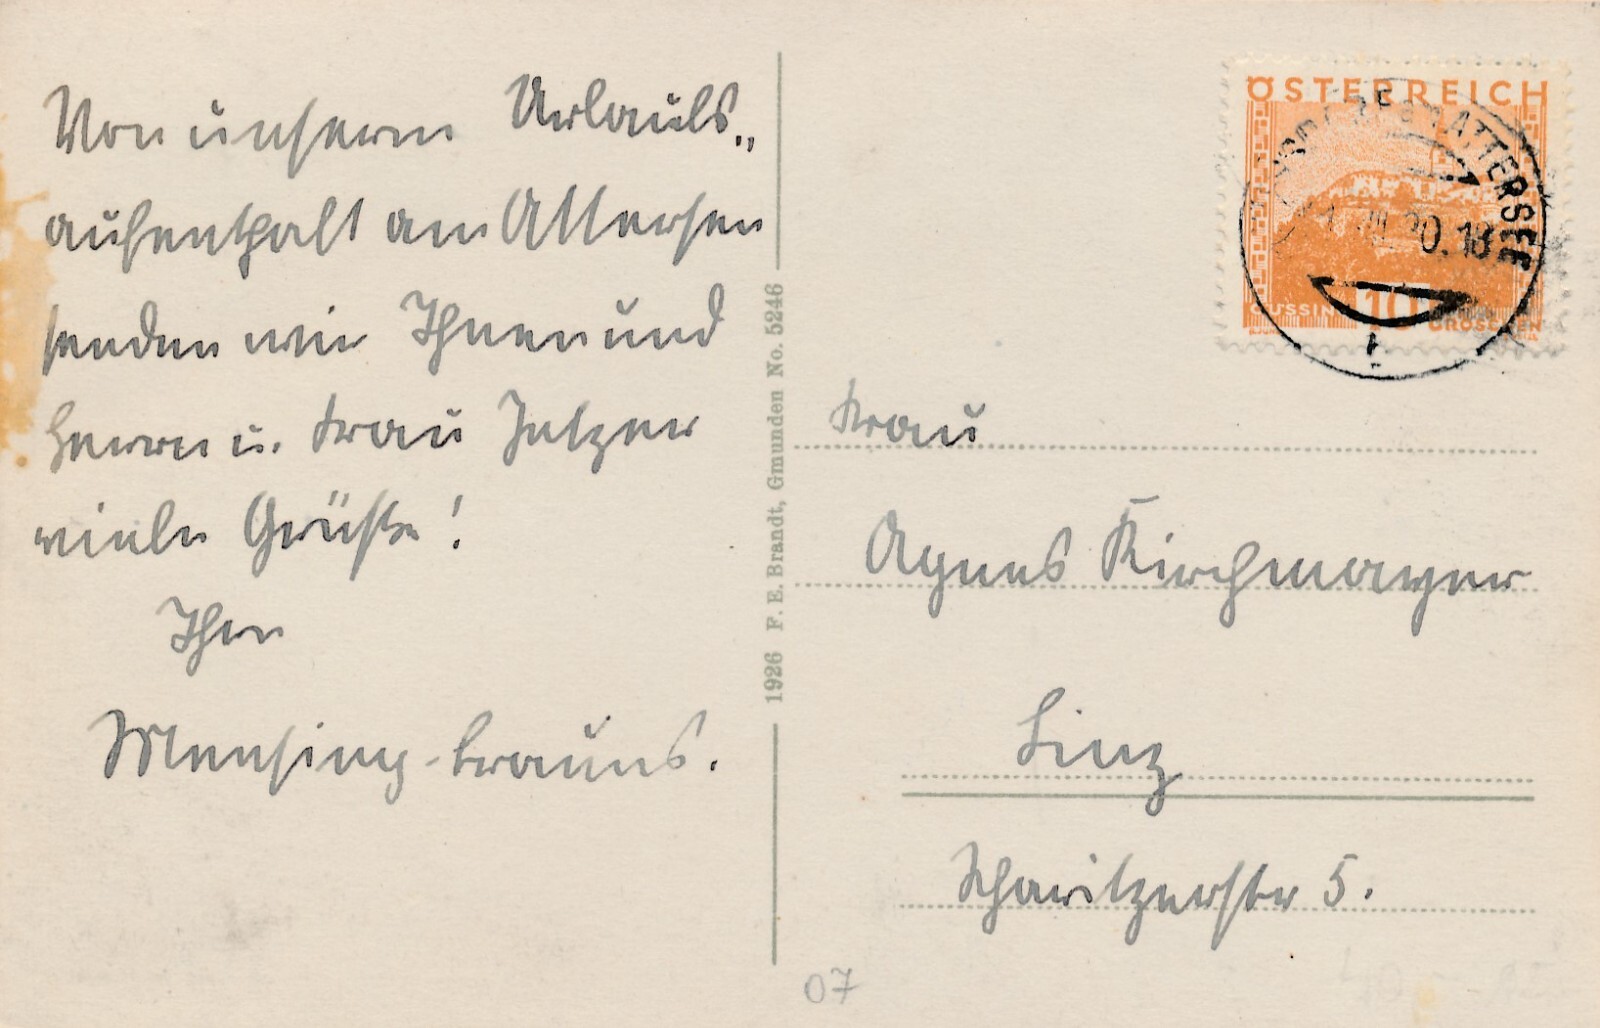 Von unserm Urlaubs„
aufenthalt am Attersee
senden wir Ihnen und
Herrn u. Frau Jelzer
viele Grüße!
Ihre
Mensing-Krauns.
1926 F. E. Brandt, Gmunden No. 5246
ÖSTERREICH
ATTERSEE
30.18
GÜSSING
10
GROSCHEN
Frau
Agnes Kirchmayer
Linz
Scharitzerstr 5.
07